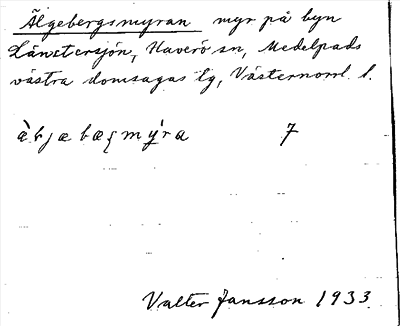 Älgebergsmyran myr på byn
Länstersjön, Haverö sn, Medelpads
västra domsagas tg, Västernorrl. l.
7
Valter Jansson 1933